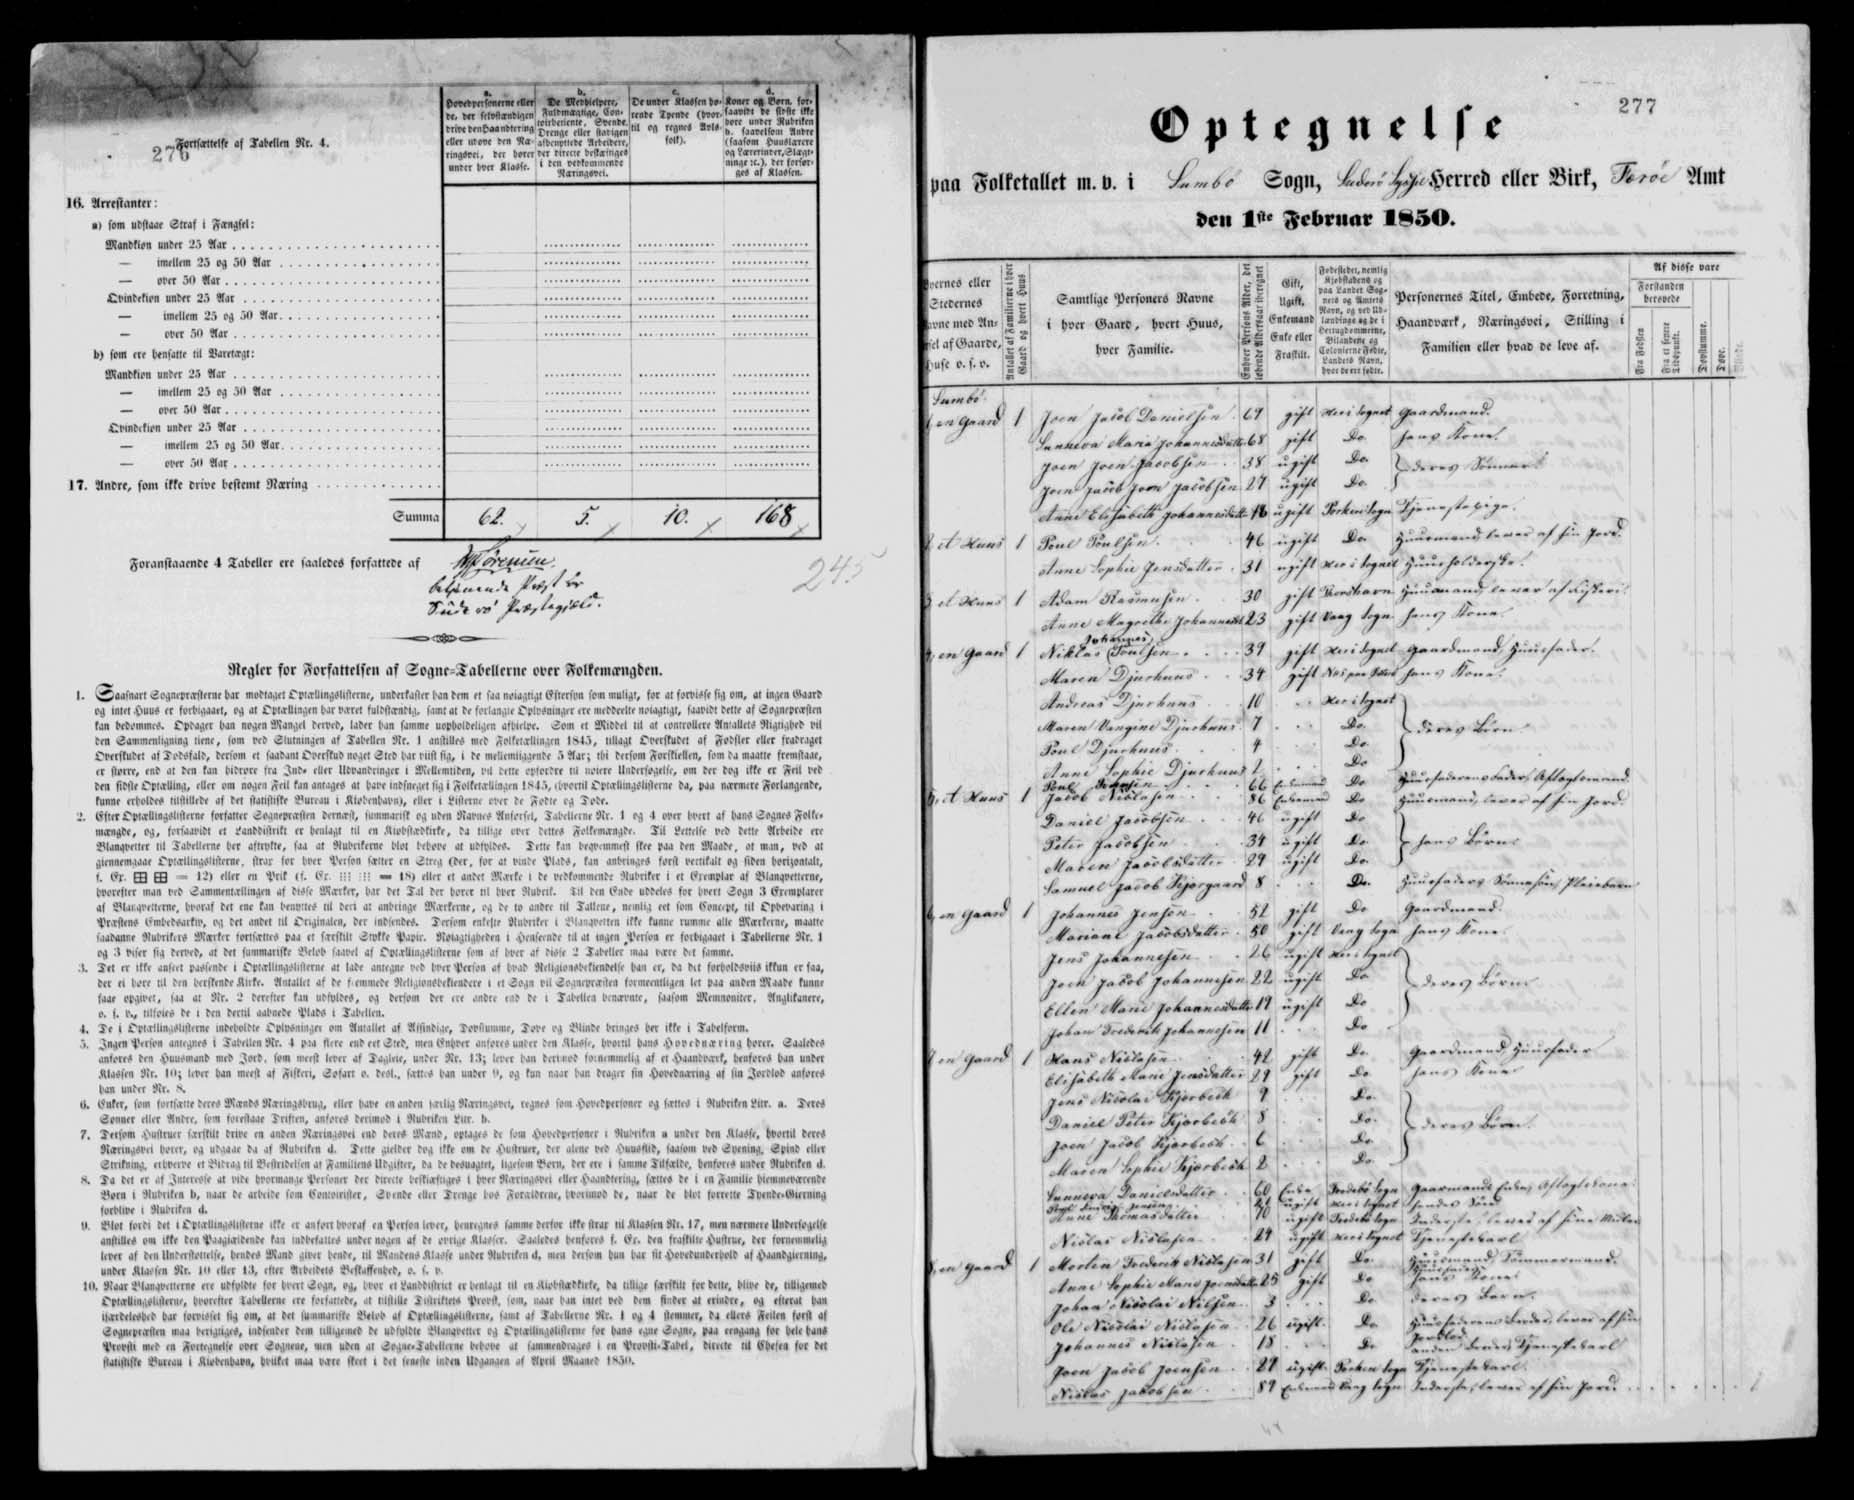 276
Fortsættelse af Tabellen Nr. 4.
a.
Hovedpersonerne eller
de, der selvstændigen
drive den Haandtering
eller utøve den Næ-
ringsvei, der hører
under hver Klasse.
b.
De Medhjelpere,
Fuldmægtige, Con-
toirbetjente, Svende,
Drenge eller stadigen
afbenyttede Arbeidere,
der directe beskæftiges
i den vedkommende
Næringsvei.
c.
De under Klassen hø-
rende Tyende (hvor-
til og regnes Avls-
folk).
d.
Koner og Børn, for-
saavidt de sidste ikke
høre under Rubriken
b. saavelsom Andre
(saasom Huuslærere
og Lærerinder, Slægt-
ninge ꝛc.), der forsør-
ges af Klassen.
16. Arrestanter:
a) som udstaae Straf i Fængsel:
Mandkiøn under 25 Aar
— imellem 25 og 50 Aar
— over 50 Aar
Qvindekiøn under 25 Aar
— imellem 25 og 50 Aar
— over 50 Aar
b) som ere hensatte til Varetægt:
Mandkiøn under 25 Aar
— imellem 25 og 50 Aar
— over 50 Aar
Qvindekiøn under 25 Aar
— imellem 25 og 50 Aar
— over 50 Aar
17. Andre, som ikke drive bestemt Næring
Summa 62. 5. 10. 168
Foranstaaende 4 Tabeller ere saaledes forfattede af Sørensen.
betjenende Præst for
Suderø Præstegjæld.
245
Regler for Forfattelsen af Sogne-Tabellerne over Folkemængden.
1. Saasnart Sognepræsterne har modtaget Optællingslisterne, underkaster han dem et saa nøiagtigt Eftersyn som muligt, for at forvisse sig om, at ingen Gaard
og intet Huus er forbigaaet, og at Optællingen har været fuldstændig, samt at de forlangte Oplysninger ere meddeelte nøiagtigt, saavidt dette af Sognepræsten
kan bedømmes. Opdager han nogen Mangel derved, lader han samme uopholdeligen afhjelpe. Som et Middel til at controllere Antallets Rigtighed vil
den Sammenligning tiene, som ved Slutningen af Tabellen Nr. 1 anstilles med Folketællingen 1845, tillagt Overskudet af Fødsler eller fradraget
Overskudet af Dødsfald, dersom et saadant Overskud noget Sted har viist sig, i de mellemliggende 5 Aar; thi dersom Forskiellen, som da maatte fremstaae,
er større, end at den kan hidrøre fra Ind- eller Udvandringer i Mellemtiden, vil dette opfordre til nøiere Undersøgelse, om der dog ikke er Feil ved
den sidste Optælling, eller om nogen Feil kan antages at have indsneget sig i Folketællingen 1845, (hvortil Optællingslisterne da, paa nærmere Forlangende,
kunne erholdes tilstillede af det statistiske Bureau i Kiøbenhavn), eller i Listerne over de Fødte og Døde.
2. Efter Optællingslisterne forfatter Sognepræsten dernæst, summarisk og uden Navnes Anførsel, Tabellerne Nr. 1 og 4 over hvert af hans Sognes Folke-
mængde, og, forsaavidt et Landdistrikt er henlagt til en Kiøbstædkirke, da tillige over dettes Folkemængde. Til Lettelse ved dette Arbeide ere
Blanqvetter til Tabellerne her aftrykte, saa at Rubrikerne blot behøve at udfyldes. Dette kan beqvemmest skee paa den Maade, at man, ved at
giennemgaae Optællingslisterne, strax for hver Person sætter en Streg (der, for at vinde Plads, kan anbringes først vertikalt og siden horizontalt,
f. Ex. = 12) eller en Prik (f. Ex. = 18) eller et andet Mærke i de vedkommende Rubriker i et Exemplar af Blanqvetterne,
hvorefter man ved Sammentællingen af disse Mærker, har det Tal der hører til hver Rubrik. Til den Ende uddeles for hvert Sogn 3 Exemplarer
af Blanqvetterne, hvoraf det ene kan benyttes til deri at anbringe Mærkerne, og de to andre til Tallene, nemlig eet som Concept, til Opbevaring i
Præstens Embedsarkiv, og det andet til Originalen, der indsendes. Dersom enkelte Rubriker i Blanqvetten ikke kunne rumme alle Mærkerne, maatte
saadanne Rubrikers Mærker fortsættes paa et særskilt Stykke Papir. Nøiagtigheden i Henseende til at ingen Person er forbigaaet i Tabellerne Nr. 1
og 3 viser sig derved, at det summariske Beløb saavel af Optællingslisterne som af hver af disse 2 Tabeller maa være det samme.
3. Det er ikke anseet passende i Optællingslisterne at lade antegne ved hver Person af hvad Religionsbekiendelse han er, da det forholdsviis ikkun er faa,
der ei høre til den herskende Kirke. Antallet af de fremmede Religionsbekiendere i et Sogn vil Sognepræsten formeentligen let paa anden Maade kunne
faae opgivet, saa at Nr. 2 derefter kan udfyldes, og dersom der ere andre end de i Tabellen benævnte, saasom Memnoniter, Anglikanere,
o. s. v., tilføies de i den dertil aabnede Plads i Tabellen.
4. De i Optællingslisterne indeholdte Oplysninger om Antallet af Afsindige, Døvstumme, Døve og Blinde bringes her ikke i Tabelform.
5. Ingen Person antegnes i Tabellen Nr. 4 paa flere end eet Sted, men Enhver anføres under den Klasse, hvortil hans Hovednæring hører. Saaledes
anføres den Huusmand med Jord, som meest lever af Dagleie, under Nr. 13; lever han derimod fornemmelig af et Haandværk, henføres han under
Klassen Nr. 10; lever han meest af Fiskeri, Søfart o. desl., sættes han under 9, og kun naar han drager sin Hovednæring af sin Jordlod anføres
han under Nr. 8.
6. Enker, som fortsætte deres Mænds Næringsbrug, eller have en anden særlig Næringsvei, regnes som Hovedpersoner og sættes i Rubriken Litr. a. Deres
Sønner eller Andre, som forestaae Driften, anføres derimod i Rubriken Litr. b.
7. Dersom Hustruer særskilt drive en anden Næringsvei end deres Mænd, optages de som Hovedpersoner i Rubriken a under den Klasse, hvortil deres
Næringsvei hører, og udgaae da af Rubriken d. Dette gielder dog ikke om de Hustruer, der alene ved Huusflid, saasom ved Syening, Spind eller
Strikning, erhverve et Bidrag til Bestridelsen af Familiens Udgifter, da de desuagtet, ligesom Børn, der ere i samme Tilfælde, henføres under Rubriken d.
8. Da det er af Interesse at vide hvormange Personer der directe beskiæftiges i hver Næringsvei eller Haandtering, sættes de i en Familie hjemmeværende
Børn i Rubriken b, naar de arbeide som Contoirister, Svende eller Drenge hos Forældrene, hvorimod de, naar de blot forrette Tyende-Gierning
forblive i Rubriken d.
9. Blot fordi det i Optællingslisterne ikke er anført hvoraf en Person lever, henregnes samme derfor ikke strax til Klassen Nr. 17, men nærmere Undersøgelse
anstilles om ikke den Paagiældende kan indbefattes under nogen af de øvrige Klasser. Saaledes henføres f. Ex. den fraskilte Hustrue, der fornemmelig
lever af den Understøttelse, hendes Mand giver hende, til Mandens Klasse under Rubriken d, men dersom hun har sit Hovedunderhold af Haandgierning,
under Klassen Nr. 10 eller 13, efter Arbeidets Beskaffenhed, o. s. v.
10. Naar Blanqvetterne ere udfyldte for hvert Sogn, og, hvor et Landdistrict er henlagt til en Kiøbstædkirke, da tillige særskilt for dette, blive de, tilligemed
Optællingslisterne, hvorefter Tabellerne ere forfattede, at tilstille Districtets Provst, som, naar han intet ved dem finder at erindre, og efterat han
isærdeleshed har forvisset sig om, at det summariske Beløb af Optællingslisterne, samt af Tabellerne Nr. 1 og 4 stemmer, da ellers Feilen først af
Sognepræsten maa berigtiges, indsender dem tilligemed de udfyldte Blanqvetter og Optællingslisterne for hans egne Sogne, paa eengang for hele hans
Provsti med en Fortegnelse over Sognene, men uden at Sogne-Tabellerne behøve at sammendrages i en Provsti-Tabel, directe til Chefen for det
statistiske Bureau i Kiøbenhavn, hvilket maa være skeet i det seneste inden Udgangen af April Maaned 1850.
277
Optegnelse
paa Folketallet m. v. i Sumbø Sogn, Suderø Syssel Herred eller Birk, Færøe Amt
den 1ste Februar 1850.
Byernes eller
Stedernes
Navne med An-
tal af Gaarde,
Huse o. s. v.
Antallet af Familierne i hver
Gaard og hvert Huus
Samtlige Personers Navne
i hver Gaard, hvert Huus,
hver Familie.
Enhver Persons Alder, det
løbende Aldersaar iberegnet
Gift,
Ugift,
Enkemand
Enke eller
Fraskilt.
Fødestedet, nemlig
Kjøbstadens og
paa Landet Sog-
nets og Amtets
Navn, og ved Ud-
lændinge og de i
Hertugdømmerne,
Bilandene og
Colonierne Fødte,
Landets Navn,
hvor de ere fødte.
Personernes Titel, Embede, Forretning,
Haandværk, Næringsvei, Stilling i
Familien eller hvad de leve af.
Af disse vare
Forstanden
berøvede
Fra Fødslen
Fra et senere
Tidspunkt.
Døvstumme.
Døve.
Blinde.
Sumbø.
1, en Gaard 1 Joen Jacob Danielsen 69 gift Her i Sognet Gaardmand.
Sunneva Maria Johannesdatter 68 gift Do. hans Kone
Joen Joen Jacobsen 38 ugift Do. deres Sønner
Joen Jacob Joen Jacobsen 27 ugift Do.
Anne Elisabeth Johannesdatter 18 ugift Porkeri Sogn Tjenestepige.
2, et Huus 1 Poul Poulsen 46 ugift Do. Huusmand, lever af sin Jord.
Anne Sophie Jensdatter 31 ugift Her i Sognet Huusholderske.
3, et Huus 1 Adam Rasmusen 30 gift Thorshavn Huusmand, lever af Fiskeri
Anne Magrethe Johannesd. 23 gift Vaag Sogn hans Kone
4, en Gaard 1 Niklas Johannes Poulsen 39 gift Her i Sognet Gaardmand, Huusfader
Maren Djurhuus 34 gift Næs paa hans Kone
Andreas Djurhuus 10 Her i Sognet
Maren Djurhuus 7 Do. deres Børn
Poul Djurhuus 4 Do.
Anne Sophie Djurhuus 2 Do.
Poul 66 Enkemand Do Huusfaderens Fader, Aftægtsmand
5, et Huus 1 Jacob Niclasen 86 Enkemand Do Huusmand, lever af sin Jord.
Daniel Jacobsen 46 ugift Do
Peter Jacobsen 34 ugift Do. hans Børn
Maren Jacobsdatter 29 ugift Do.
Samuel Jacob Kjergaard 8 Do. Huusfaders Sønnesøn, Pleiebarn
6, en Gaard 1 Johannes Jensen 52 gift Do Gaardmand.
Mariane Jacobsdatter 50 gift Vaag Sogn hans Kone
Jens Johannesen 26 ugift Her i Sognet
Joen Jacob Johannesen 22 ugift Do. deres Børn
Ellen Marie Johannesdatter 19 ugift Do
Johan Frederik Johannesen 11 Do
7, en Gaard 1 Hans Niclasen 42 gift Do. Gaardmand, Huusfader
Elisabeth Marie Jensdatter 29 gift Do. hans Kone
Jens Nicolai Kjærbech 9 Do.
Daniel Peter Kjærbech 8 Do. deres Børn.
Joen Jacob Kjærbech 6 Do.
Maren Sophie Kjærbech 2 Do.
Sunneva Danielsdatter 60 Enke Fredebø Sogn Aftægtskone
Jensen ugift Her i Sognet hendes Søn
Anne Thomasdatter 70 ugift Fredebø Sogn Inderste, lever af sine Midler
Niclas Niclasen 24 ugift Her i Sognet Tjenestekarl
8, en Gaard 1 Morten Frederik Niclasen 31 gift Do. Huusmand, Tømmermand.
Huusfader
Anne Sophie Marie Joensdatter 25 gift Do hans Kone
Johan Nicolai Nilsen 3 Do. deres Barn.
Ole Nicolai Niclasen 26 ugift Do. Huusfaderens Broder, lever af sin
Jordlod
Johannes Niclasen 18 Do anden Broder, Tjenestekarl
Joen Jacob Joensen 29 ugift Porkeri Sogn Tjenestekarl.
Niclas Jacobsen 89 Enkemand Vaag Sogn Inderste, lever af sin Jord. 1